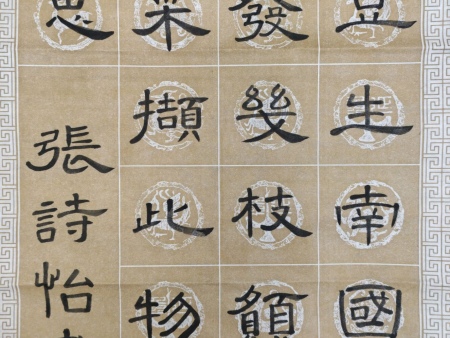 豆生南國
發幾枝願
采擷此物
思
張詩怡